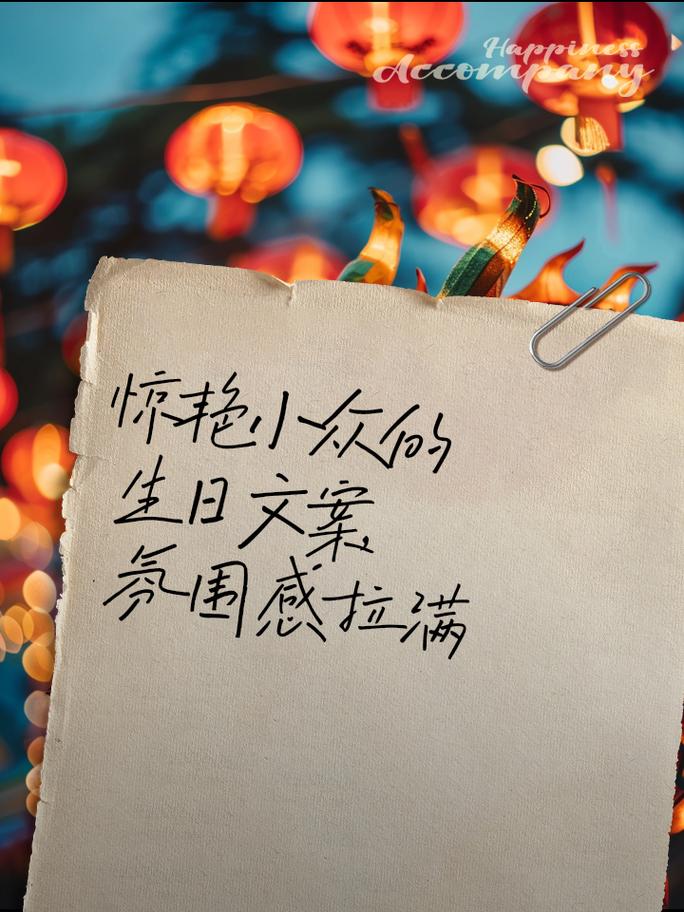 Happiness
Accompany
惊艳小众的
生日文案
氛围感拉满